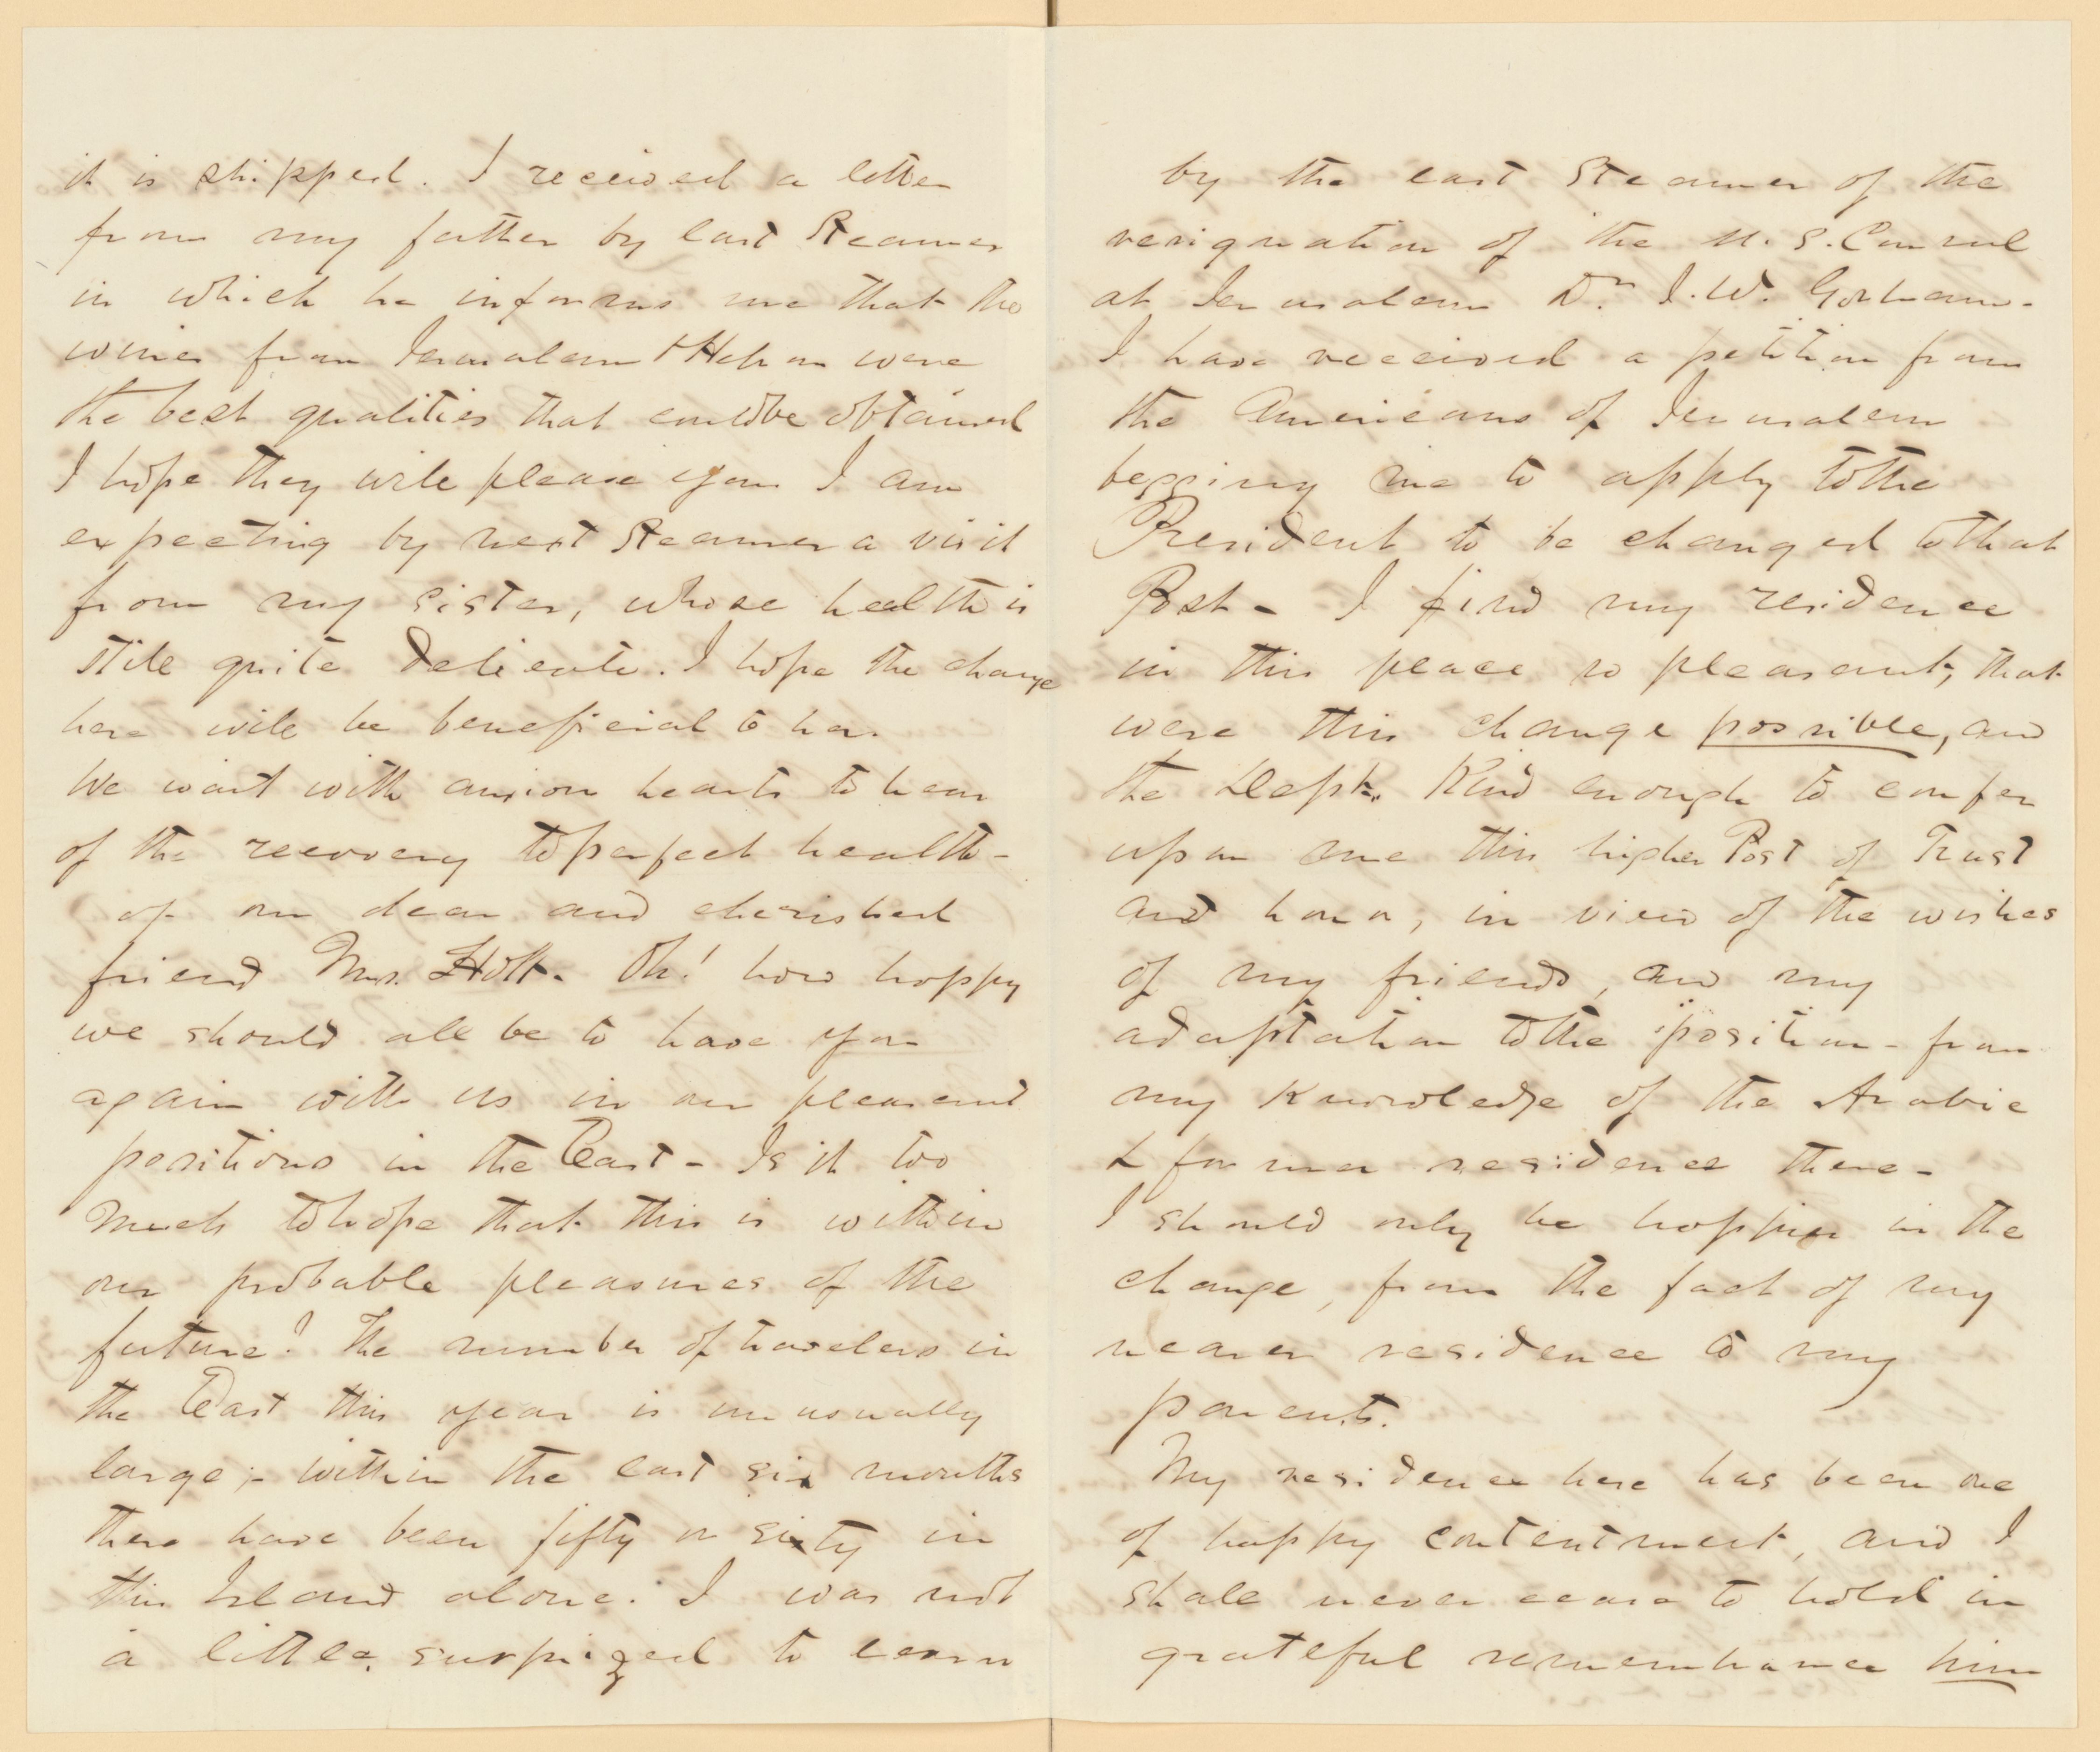 it is shipped. I received a letter
from my father by last Steamer
in which he informs me that the
wines from Jerusalem & Hebron were
the best qualities that could be obtained
I hope they will please you I am
expecting by next Steamer a visit
from my sister, whose health is
still quite delicate. I hope the change
here will be beneficial to her.
We wait with anxious hearts to hear
of the recovery to perfect health -
of our dear and cherished
friend Mrs. Holt. Oh! how happy
we should all be to have you
again with us in our pleasant
positions in the East - Is it too
much to hope that this is within
our probable pleasures of the
future? The number of travelers in
the East this year is unusually
large; - within the last six months
there have been fifty or sixty in
this Island alone. I was not
a little surprized to learn
by the last Steamer of the
resignation of the U.S. Consul
at Jerusalem Dr. J.W. Gorham -
I have received a petition from
the Americans of Jerusalem
begging me to apply to the
President to be changed to that
Post - I find my residence
in this place so pleasant, that
were this change possible, and
the Dept. Kind enough to confer
upon me this higher Post of Trust
and honor, in view of the wishes
of my friends, and my
adaptation to the position - from
my Knowledge of the Arabic
& former residence there -
I should only be happier in the
change, from the fact of my
nearer residence to my
parents.
My residence here has been one
of happy contentment, and I
shall never cease to hold in
grateful remembrance him